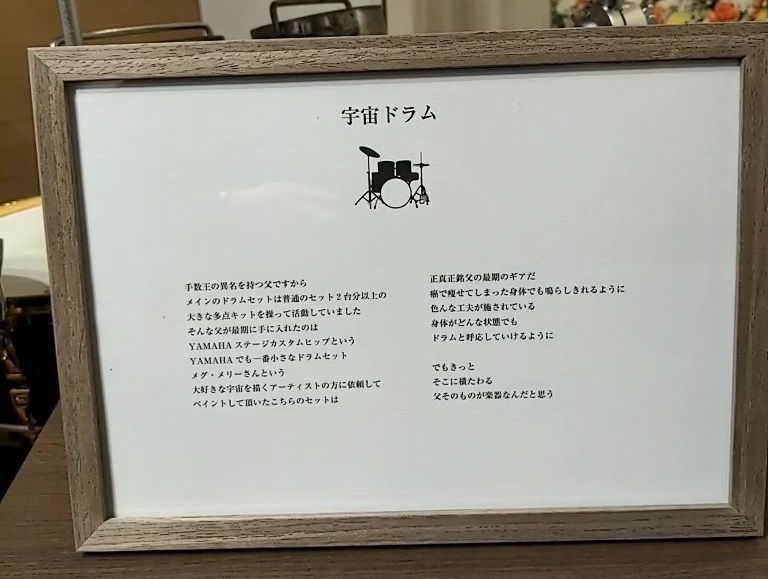 宇宙ドラム
手数王の異名を持つ父ですから
メインのドラムセットは普通のセット2台分以上の
大きな多点キットを操って活動していました
そんな父が最期に手に入れたのは
YAMAHAステージカスタムヒップという
YAMAHAでも一番小さなドラムセット
メグ・メリーさんという
大好きな宇宙を描くアーティストの方に依頼して
ペイントして頂いたこちらのセットは
正真正銘父の最期のギアだ
癌で痩せてしまった身体でも鳴らしきれるように
色んな工夫が施されている
身体がどんな状態でも
ドラムと呼応していけるように
でもきっと
そこに横たわる
父そのものが楽器なんだと思う